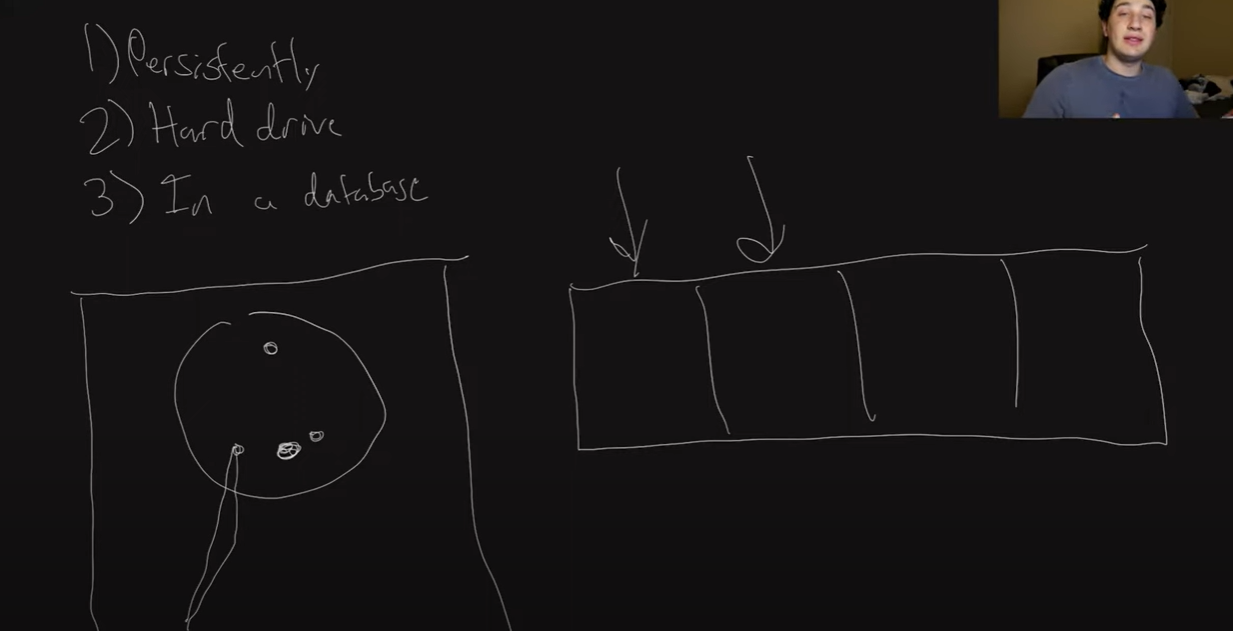 1) Persistently
2) Hard drive
3) In a database